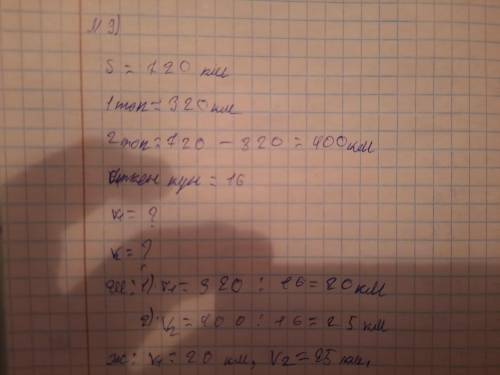 м 3)
S = 720 км
1 топ = 320 км
2 топ = 720 - 320 = 400 км
өткен күн = 16
v₁ = ?
v₂ = ?
Ш: 1) v₁ = 320 : 16 = 20 км
2) v₂ = 400 : 16 = 25 км
Ж: v₁ = 20 км, v₂ = 25 км,